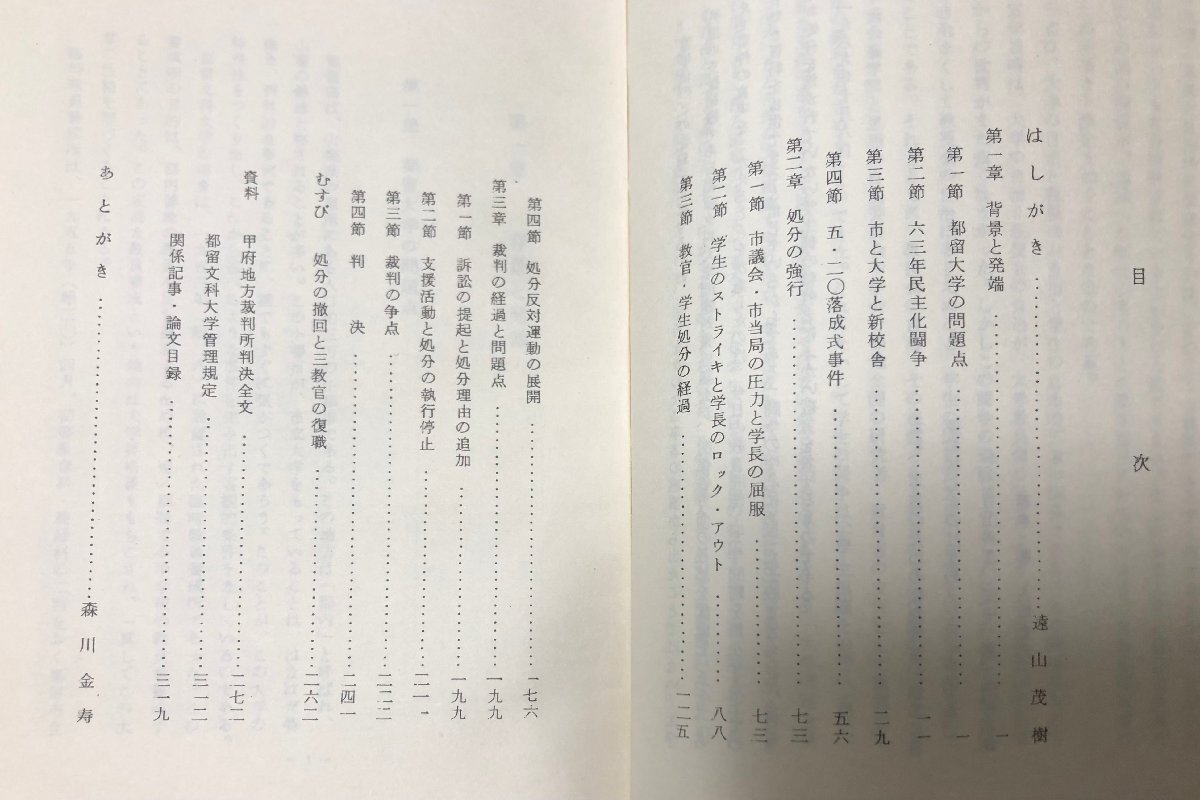 目次
はしがき……………………遠山茂樹
第一章　背景と発端……………………一
第一節　都留大学の問題点……………………一
第二節　六三年民主化闘争……………………一一
第三節　市と大学と新校舎……………………二九
第四節　五・二〇落成式事件……………………五六
第二章　処分の強行……………………七三
第一節　市議会・市当局の圧力と学長の屈服……………………七三
第二節　学生のストライキと学長のロック・アウト……………………八八
第三節　教官・学生処分の経過……………………一二五
第四節　処分反対運動の展開……………………一七六
第三章　裁判の経過と問題点……………………一九九
第一節　訴訟の提起と処分理由の追加……………………一九九
第二節　支援活動と処分の執行停止……………………二一一
第三節　裁判の争点……………………二二二
第四節　判決……………………二四一
むすび　処分の撤回と三教官の復職……………………二六二
資料　甲府地方裁判所判決全文……………………二七二
都留文科大学管理規定……………………三一二
関係記事・論文目録……………………三一九
あとがき……………………森川金寿